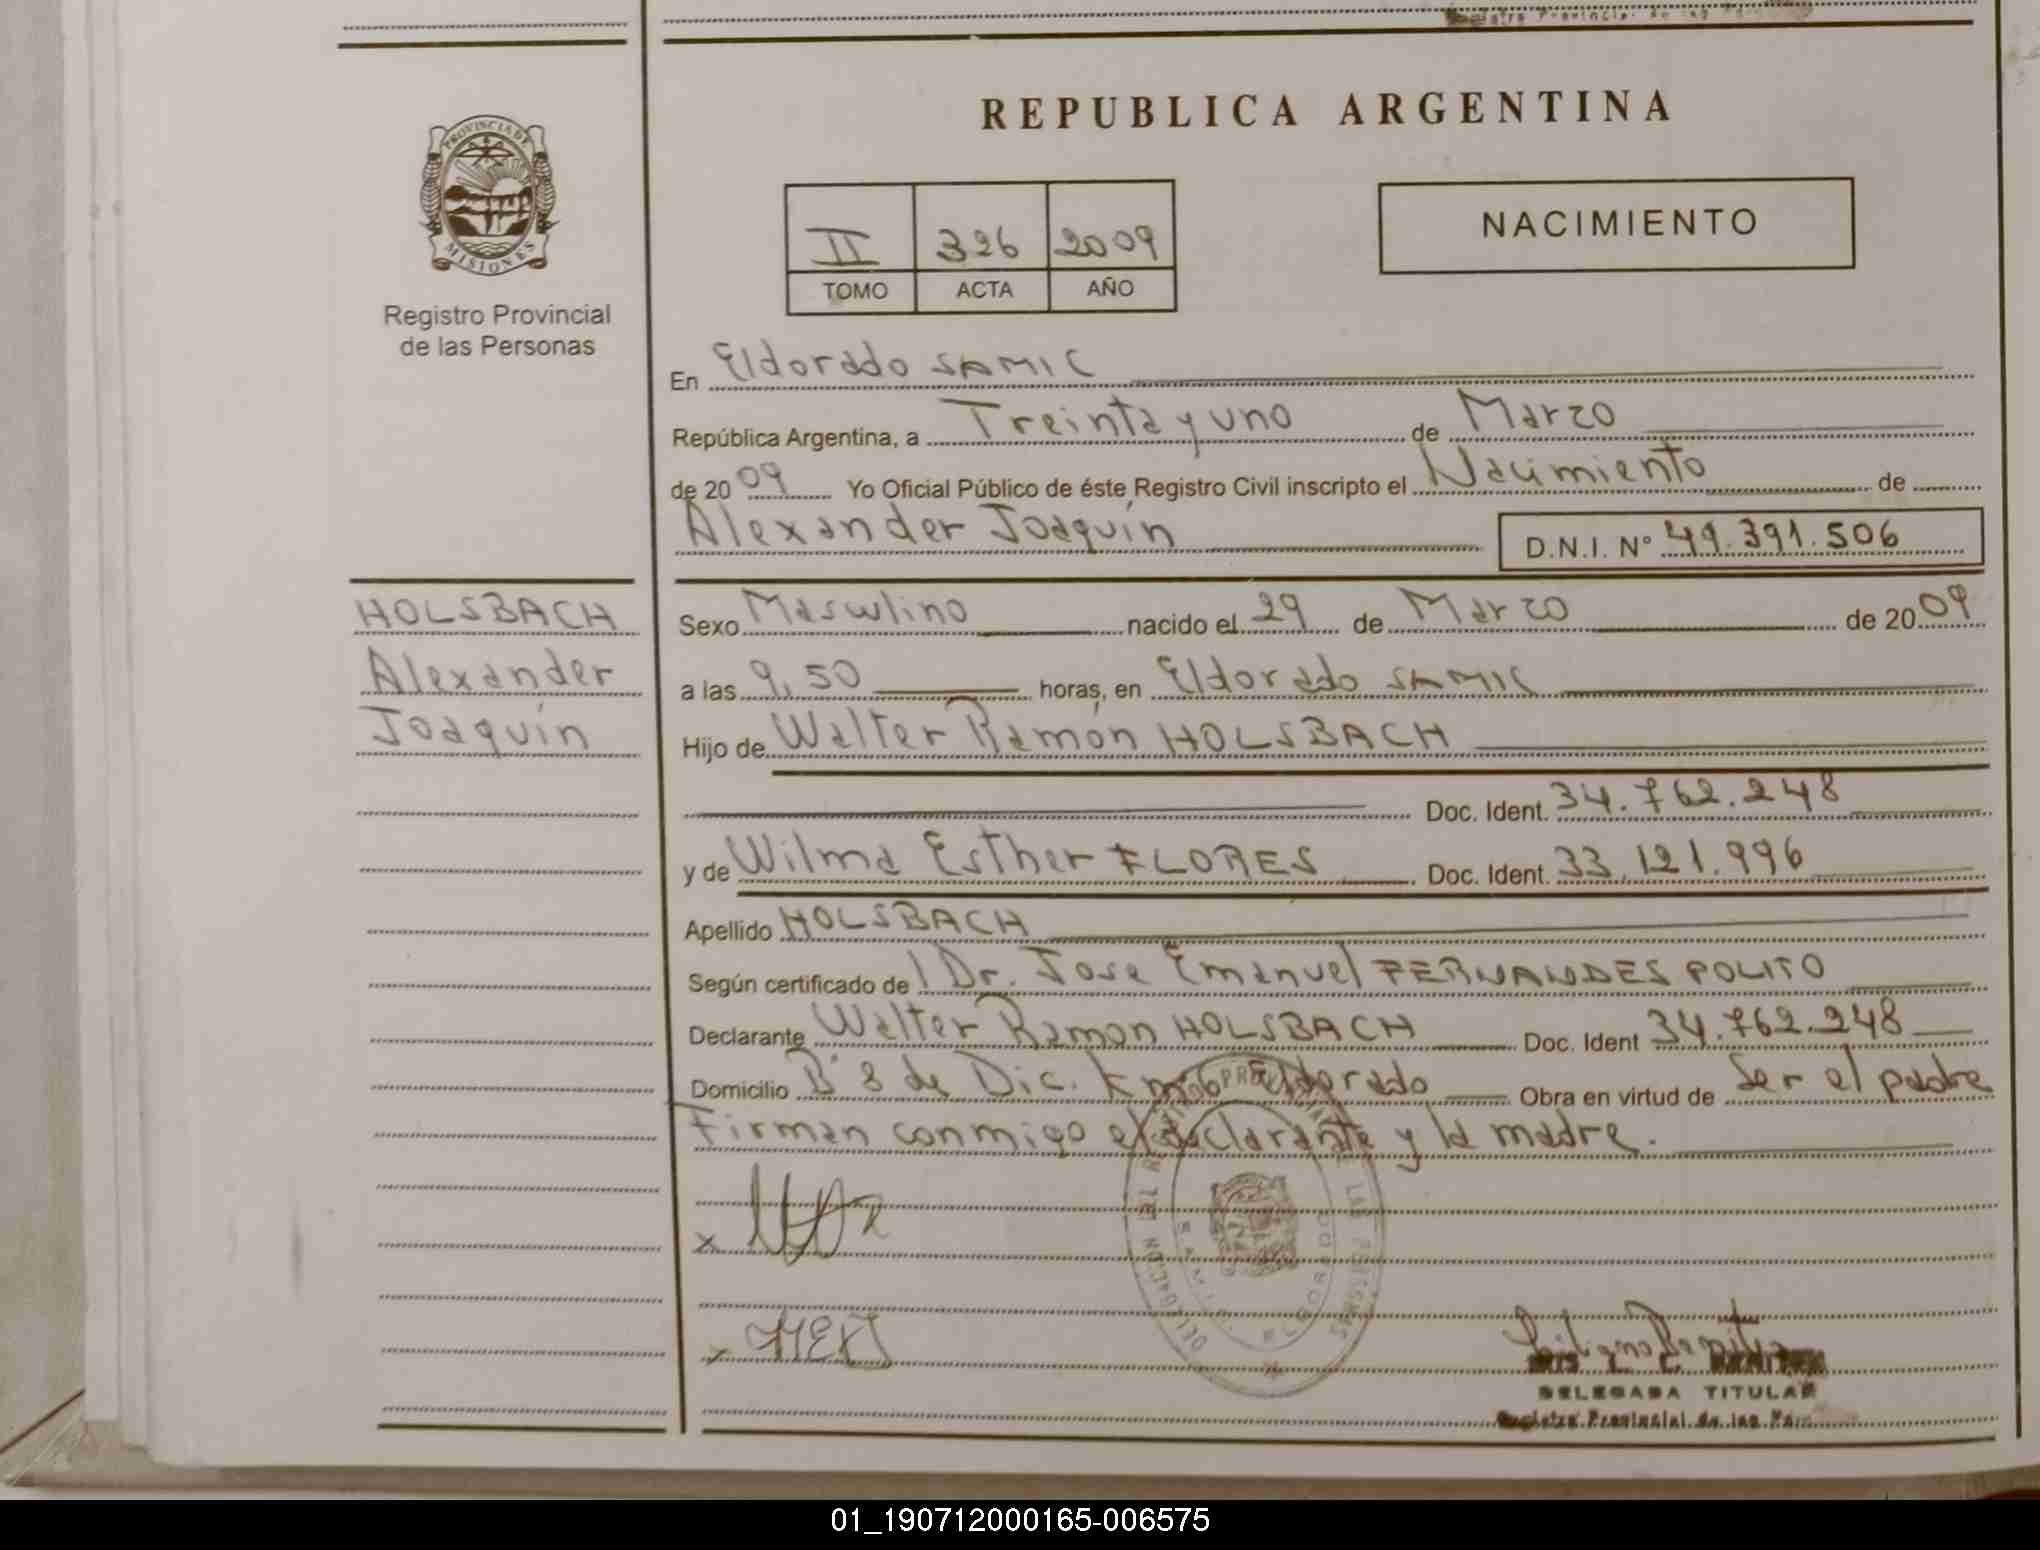 REPUBLICA ARGENTINA
PROVINCIA DE
MISIONES
Registro Provincial
de las Personas
II 326 2009
TOMO ACTA AÑO
NACIMIENTO
En Eldorado SAMIC
República Argentina, a Treinta y uno de Marzo
de 2009 Yo Oficial Público de éste Registro Civil inscripto el Nacimiento de
Alexander Joaquín
D.N.I. Nº 49.391.506
HOLSBACH
Alexander
Joaquín
Sexo Masculino nacido el 29 de Marzo de 2009
a las 9,50 horas, en Eldorado SAMIC
Hijo de Walter Ramón HOLSBACH
Doc. Ident. 34.762.248
y de Wilma Esther FLORES Doc. Ident. 33.121.996
Apellido HOLSBACH
Según certificado de l Dr. Jose Emanuel FERNANDES POLITO
Declarante Walter Ramon HOLSBACH Doc. Ident 34.762.248
Domicilio Bº 8 de Dic. Km 6 Eldorado Obra en virtud de Ser el padre
Firman conmigo el declarante y la madre.
x
x
DELEGADA TITULAR
Registro Provincial de las
01_190712000165-006575